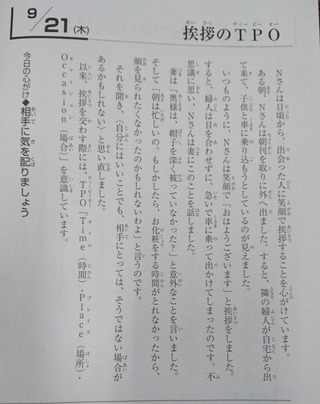 9/21(木)
挨拶のTPO
Nさんは日頃から、出会った人に笑顔で挨拶することを心がけています。
ある朝、Nさんは朝刊を取りに外へ出ました。すると、隣の婦人が自宅から出
て来て、子供と車に乗り込もうとしているのが見えました。
いつものように、Nさんは笑顔で「おはようございます」と挨拶をしました。
すると、婦人は目を合わせずに、急いで車に乗って出かけてしまったのです。不
思議に思い、Nさんは妻にこのことを話しました。
妻は「奥様は、帽子を深く被っていなかった?」と意外なことを言いました。
そして「朝は忙しいの。もしかしたら、お化粧をする時間がとれなかったから、
顔を見られたくなかったのかもしれないわよ」と言うのです。
それを聞き、〈自分にはいいことでも、相手にとっては、そうではない場合が
あるかもしれない〉と思い直しました。
以来、挨拶を交わす際には、TPO「Time(時間)・Place(場所)・
Occasion(場合)」を意識しています。
今日の心がけ◆相手に気を配りましょう